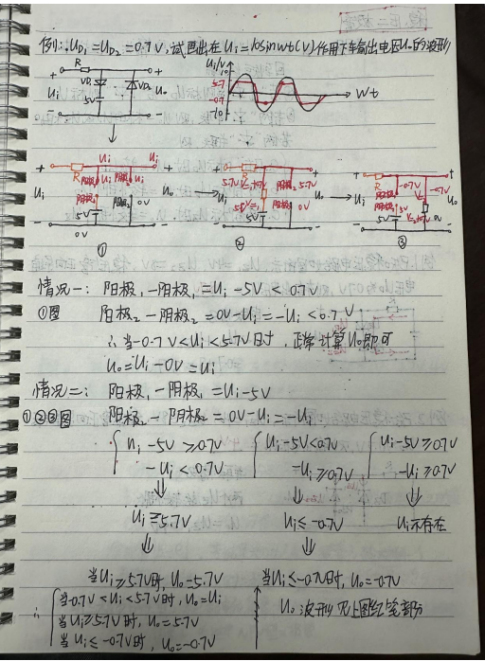 例:.U_D1=U_D2=0.7V,试画出在Ui=10sinwt(V)作用下车输出电压Uo的波形
R
+ VD1 VD2 +
Ui 5V Uo
- -
Ui/V
10
5.7
-0.7
-10
Wt
R Ui Ui
阳极1 阴极2
阴极1 阳极2
Ui 5V 0V Uo
0V
①
R 5.7V 5.7V
Ui Uo
5V 0V
②
R
-0.7V
Ui 5V Uo
0V
③
情况一: 阳极1-阴极1=Ui-5V<0.7V
①图 阳极2-阴极2=0V-Ui=-Ui<0.7V
∴当-0.7V<Ui<5.7V时,正常计算Uo即可
Uo=Ui-0V=Ui
情况二: 阳极1-阴极1=Ui-5V
①②③图 阳极2-阴极2=0V-Ui=-Ui
{Ui-5V≥0.7V {Ui-5V<0.7V {Ui-5V≥0.7V
-Ui<0.7V -Ui≥0.7V -Ui≥0.7V
⇓ ⇓ ⇓
Ui≥5.7V Ui≤-0.7V Ui不存在
⇓ ⇓
当Ui≥5.7V时,Uo=5.7V 当Ui≤-0.7V时,Uo=-0.7V
∴{当-0.7V<Ui<5.7V时,Uo=Ui
当Ui≥5.7V时,Uo=5.7V Uo波形见上图红笔部分
当Ui≤-0.7V时,Uo=-0.7V